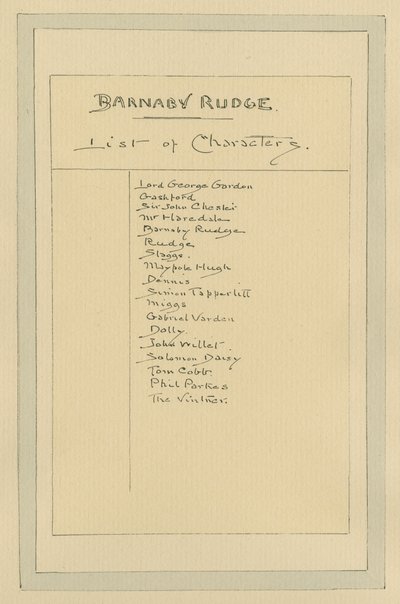 BARNABY RUDGE.
List of Characters.
Lord George Gordon
Gashford
Sir John Chester
Mr Haredale
Barnaby Rudge
Rudge
Stagg.
Maypole Hugh
Dennis
Simon Tappertitt
Miggs
Gabriel Varden
Dolly.
John Willet.
Solomon Daisy
Tom Cobb.
Phil Parkes
The Vintner.